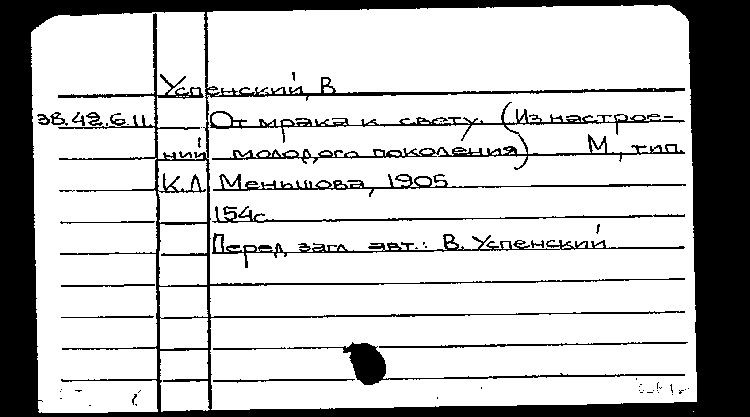 Успенский, В
38.42.6.11. От мрака к свету. (Из настрое-
ний молодого поколения) М., тип.
К.Л. Меньшова, 1905
154с.
Перед загл. авт.: В. Успенский